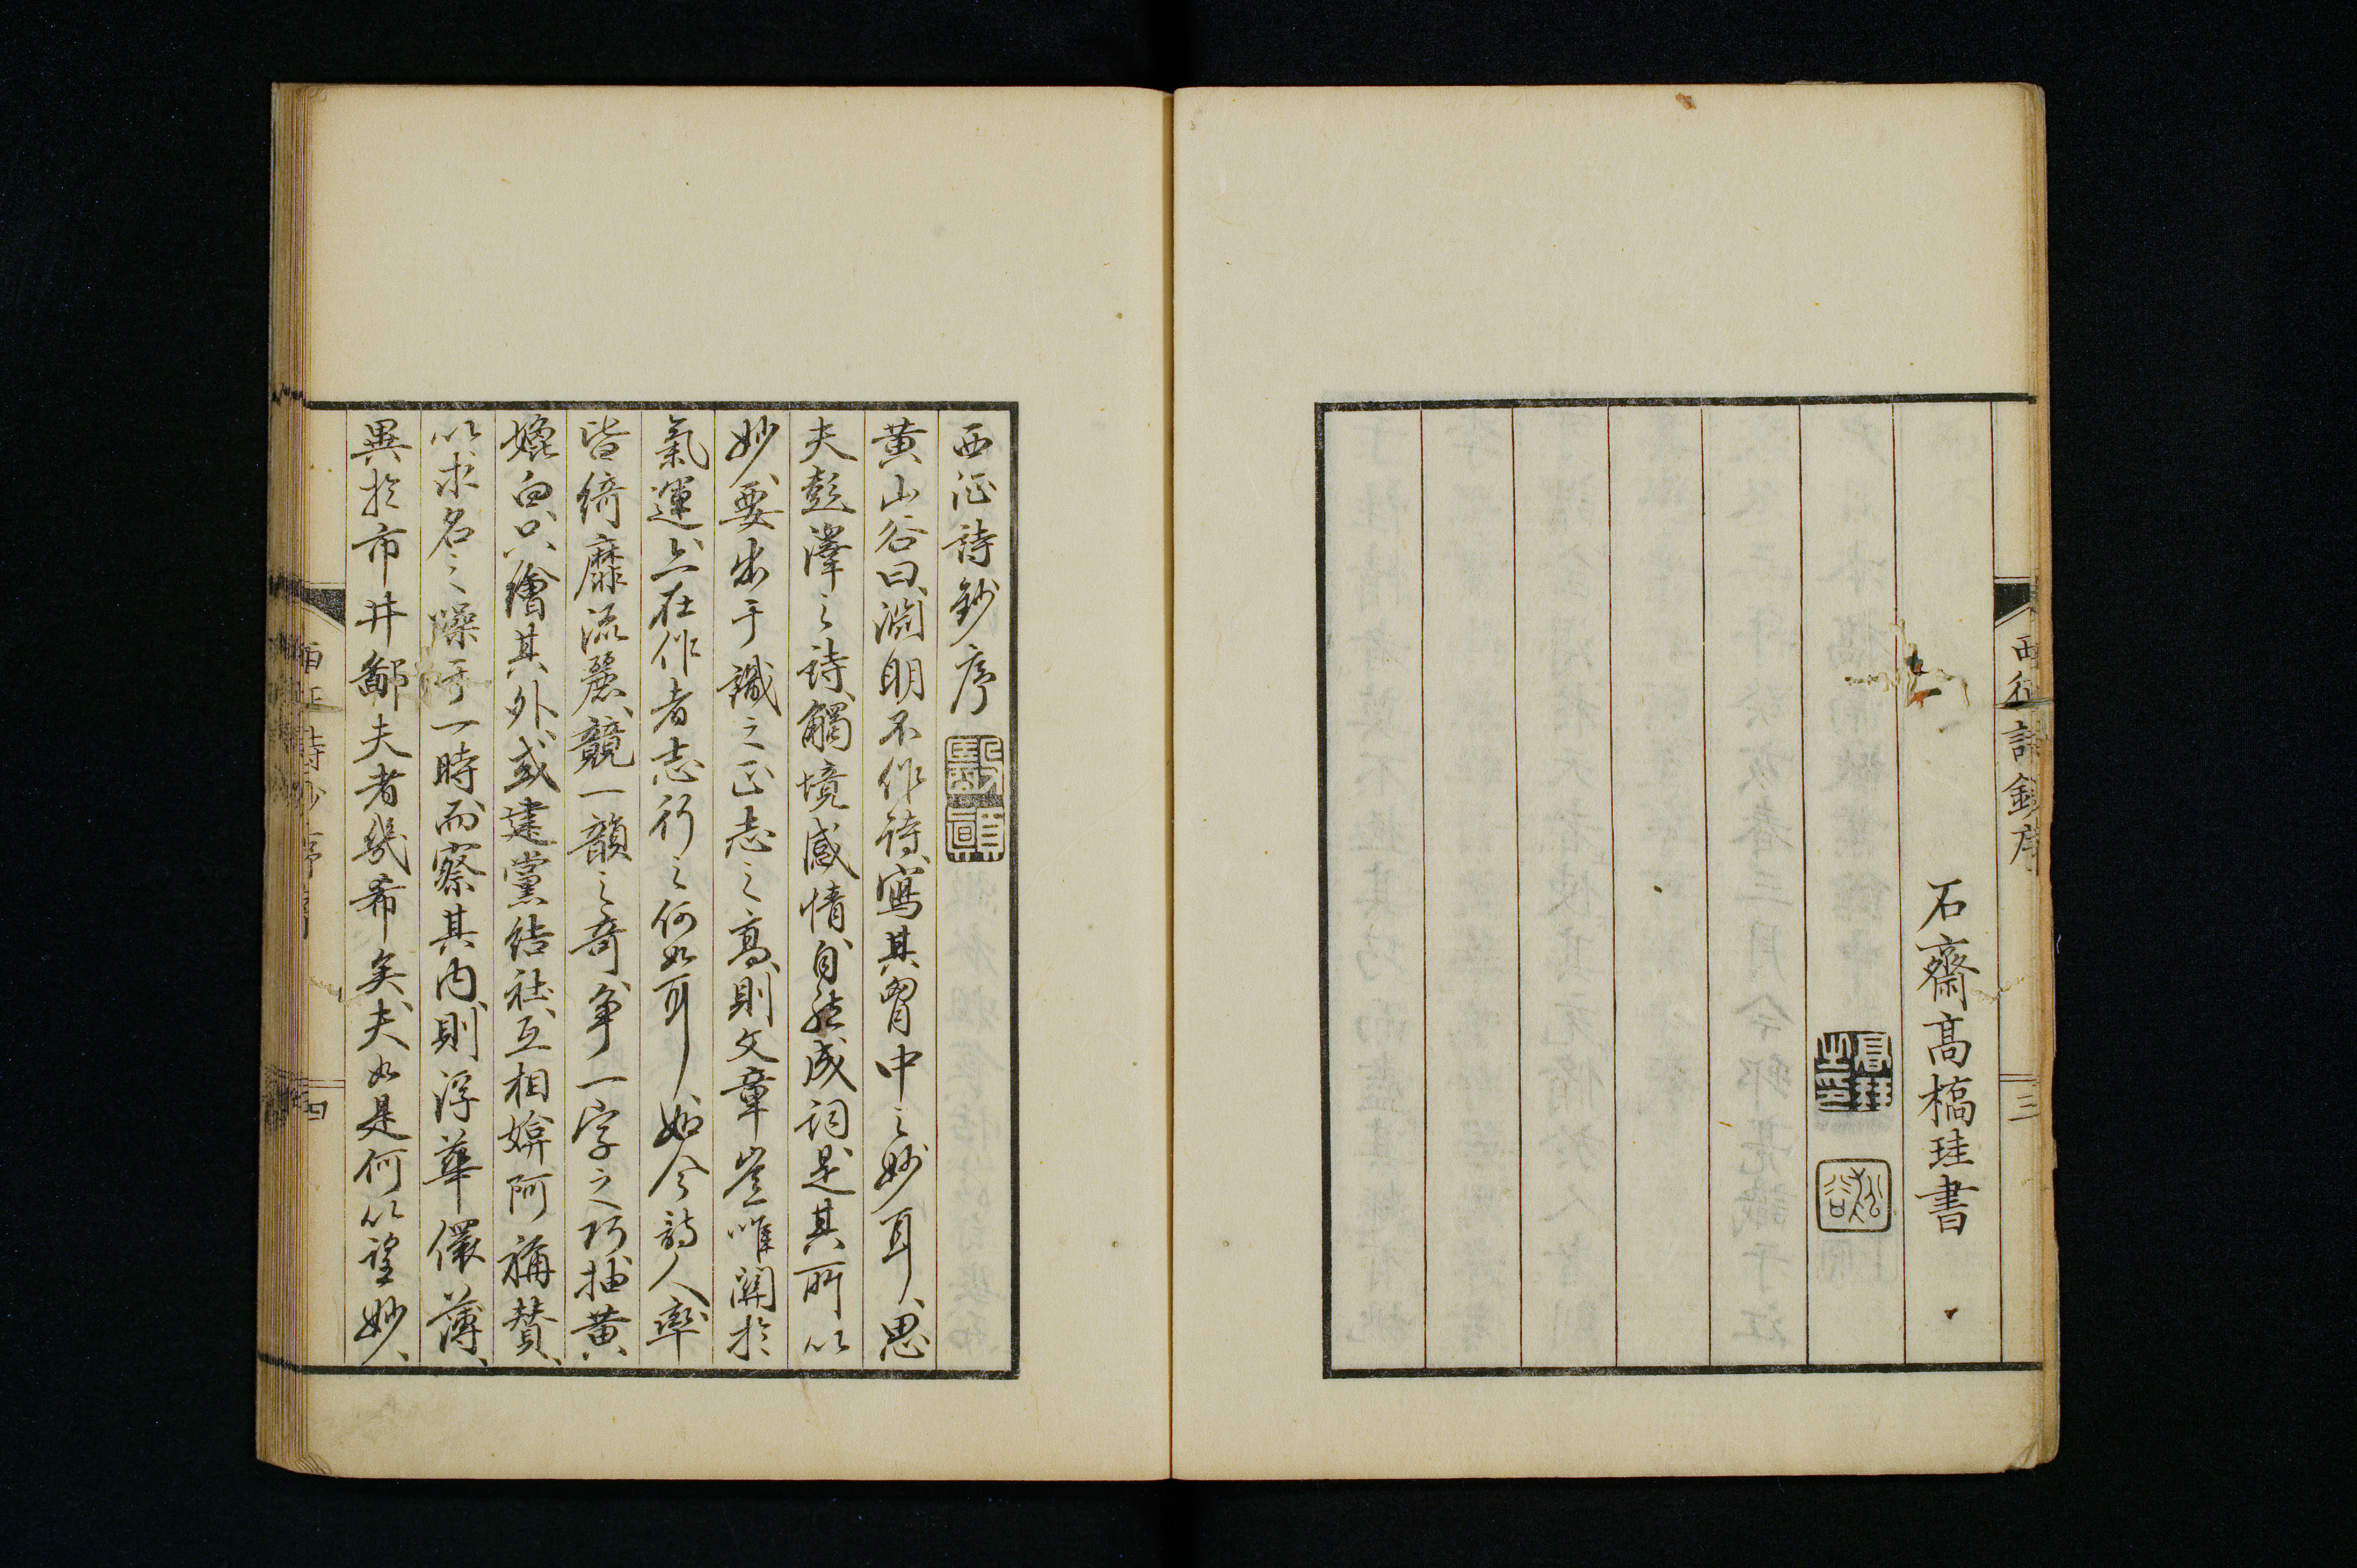 西征詩鈔序
三
石齋髙槗珪書
西征詩鈔序
黄山谷曰、淵明不作詩、寫其胷中之妙耳、思
夫彭澤之詩、觸境感情、自然成詞、是其所以
妙、要出于識之正志之高、則文章豈唯關於
氣運、亦在作者志行之何如耳、如今詩人率
皆綺靡流麗、競一韻之奇、争一字之巧、抽黄
媲白、只繪其外、或建黨結社、互相媕阿稱賛、
以求名之噪于一時、而察其内、則浮華儇薄、
異於市井鄙夫者幾希矣、夫如是何以望妙、
西征詩鈔序
四